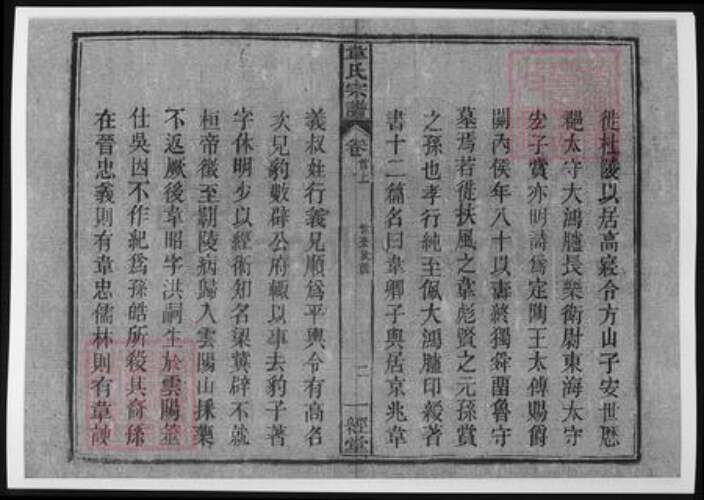 徙杜陵以居高寢令方山子安世歷
太守大鴻臚長樂衛尉東海太守
宏子賞亦明詩為定陶王太傅賜爵
關內侯年八十以壽終獨舜留魯守
墓焉若徙扶風之韋彪賢之元孫賞
之孫也孝行純至佩大鴻臚印綬著
書十二篇名曰韋卿子與居京兆韋
韋氏宗譜
卷首上
二
一經堂
義叔姓行義兄順為平輿令有高名
次兄豹數辟公府輒以事去豹子著
字休明少以經術知名梁冀辟不就
桓帝徵至霸陵病歸入雲陽山採藥
不返厥後韋昭字洪嗣生於雲陽
仕吳因不作紀為孫皓所殺其裔孫
在晉忠義則有韋忠儒林則有韋謏